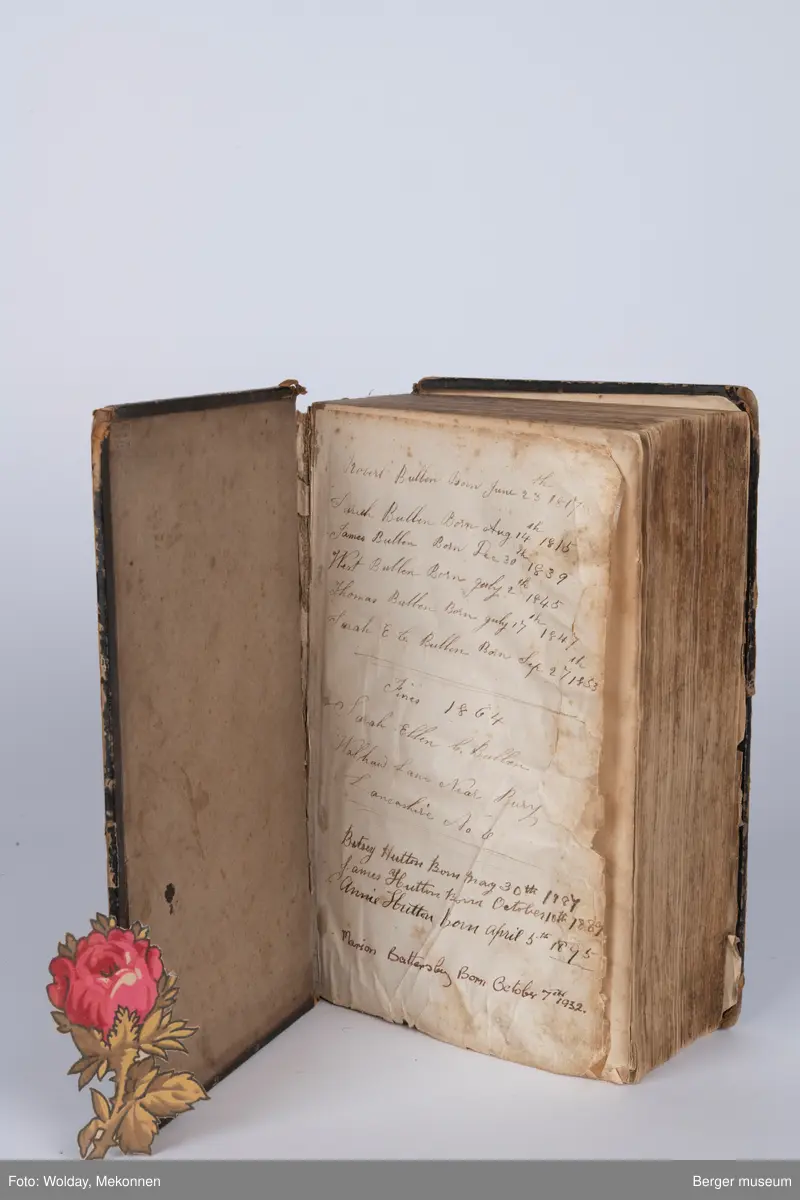 Robert Bullen Born June 23th 1817
Sarah Bullen Born Aug 14th 1815
James Bullen Born Dec 30th 1839
West Bullen Born july 2th 1845
Thomas Bullen Born july 17th 1847
Sarah E C Bullen Born Sep 27th 1853
1864
Sarah Ellen C. Bullen
Lane Near Bury
Lancashire No 6
Betsey Hutton Born may 30th 1887
James Hutton Born October 10th 1889
Annie Hutton born april 5th 1895
Marion Battersby Born October 7th 1932.
Foto: Wolday, Mekonnen
Berger museum